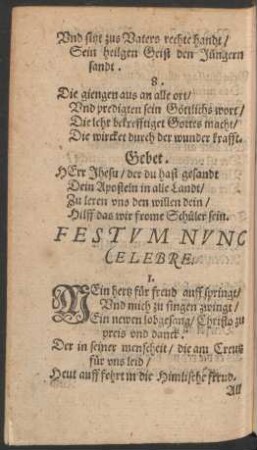 Vnd sitzt zus Vaters rechte handt /
Sein heilgen Geist den Jüngern
sandt.
8.
Die giengen aus an alle ort /
Vnd predigten sein Göttlichs wort /
Die lehr bekrefftiget Gottes macht /
Die wircket durch der wunder krafft.
Gebet.
HErr Jhesu / der du hast gesandt
Dein Aposteln in alle Landt /
Zu leren vns den willen dein /
Hilff das wir frome Schüler sein.
FESTVM NVNC
CELEBRE.
1.
MEin hertz für freud auff springt /
Vnd mich zu singen zwingt /
Ein newen lobgesang / Christo zu
preis vnd danck.
Der in seiner menscheit / die am Creutz
für vns leid /
Heut auff fehrt in die Himlische freud.
All